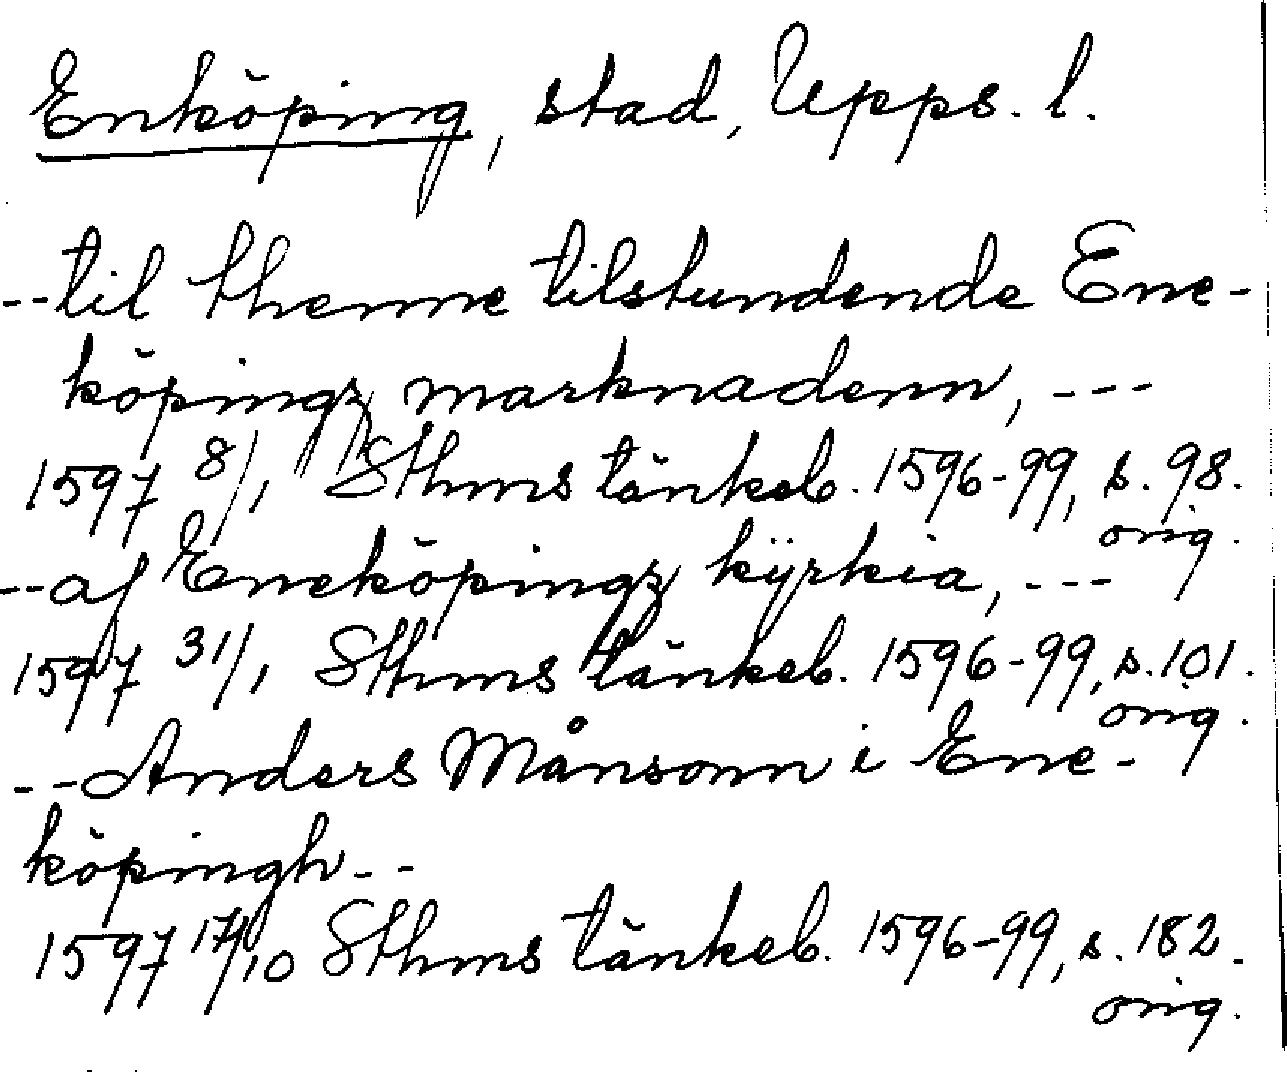 Enköping, stad, Upps. l.
--til thenne tilstundende Ene-
köpingz marknadenn, ---
1597 8/1 Sthms tänkeb. 1596-99, s. 98.
orig.
--af Eneköpingz kÿrkia, ---
1597 31/1 Sthms tänkeb. 1596-99, s. 101.
orig.
--Anders Månsonn i Ene-
köpingh--
1597 17/10 Sthms tänkeb. 1596-99, s. 182.
orig.